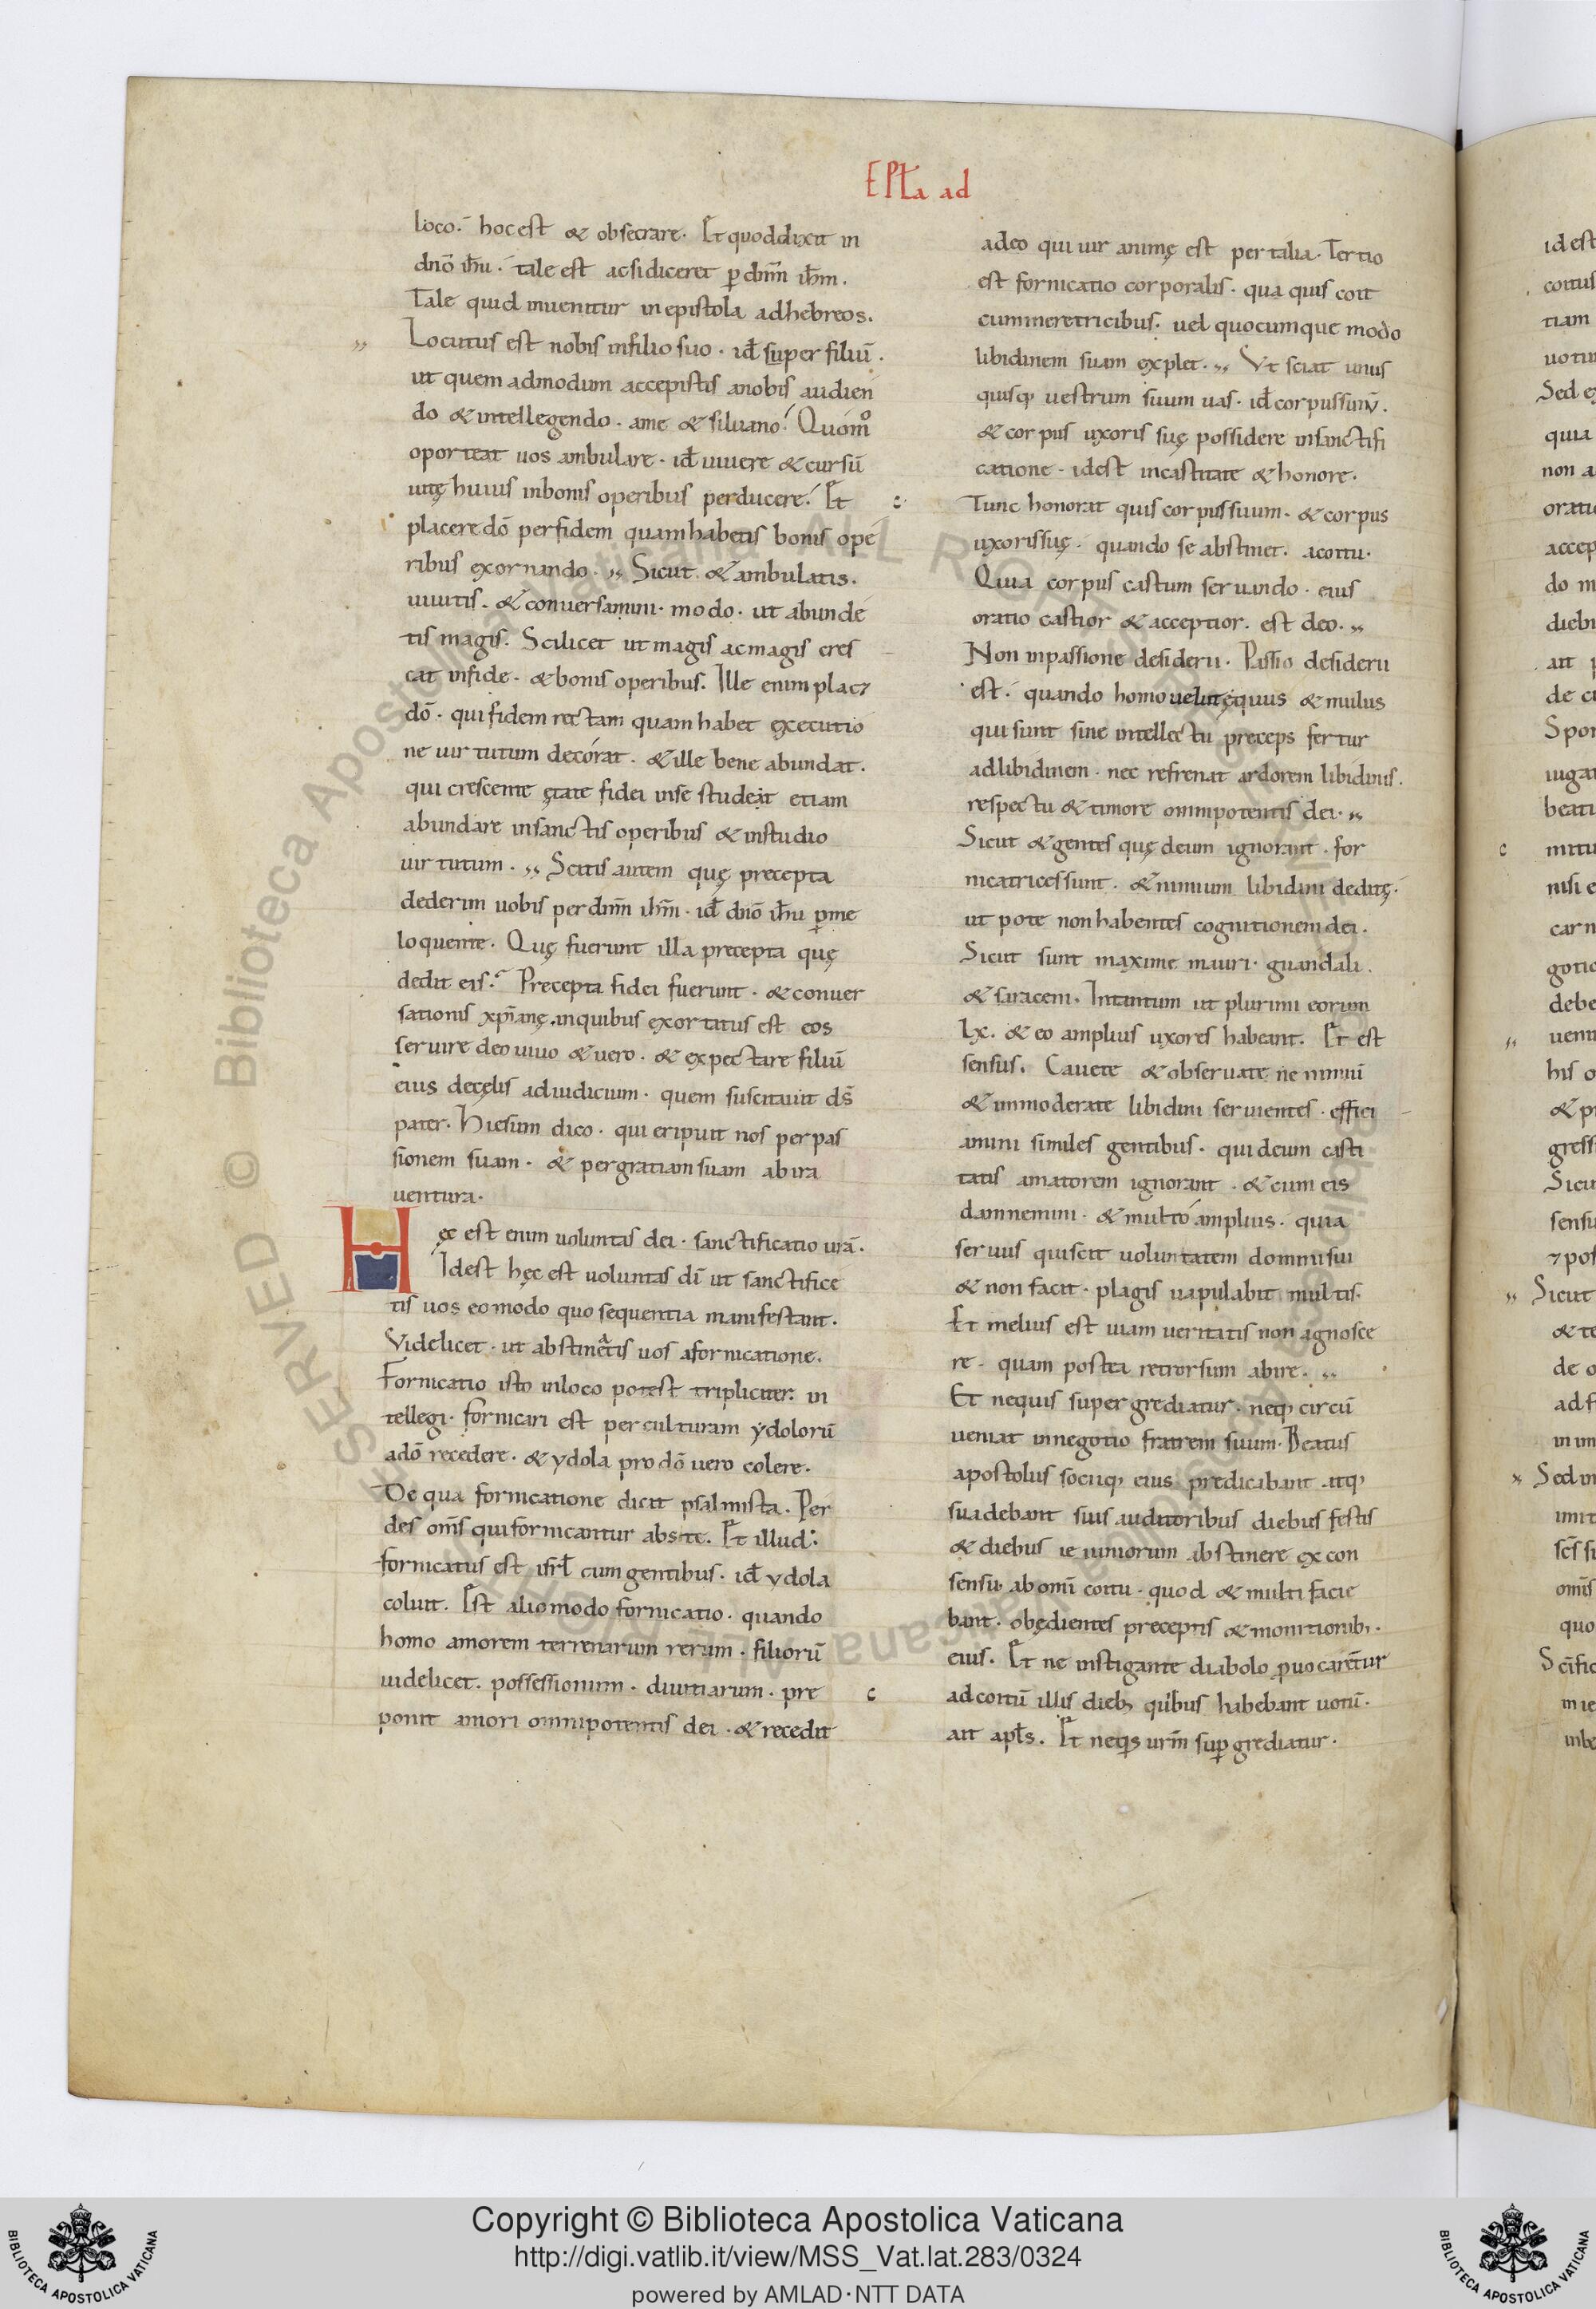 EPŁa ad
loco. hoc est & obsecrare. Et quod dixit in
dnō ihū. tale est ac si diceret ꝑ dnm̄ ihm̄.
Tale quid inuenitur in epistola ad hebreos.
„ Locutus est nobis in filio suo. iđ super filiū.
ut quem admodum accepistis a nobis audien
do & intellegendo. a me & siluano. Quom̊
oporteat uos ambulare. iđ uiuere & cursū
uitę huius in bonis operibus perducere. Et
placere dō per fidem quam habetis bonis ope
ribus exornando. „ Sicut & ambulatis.
uiuitis. & conuersamini. modo. ut abunde
tis magis. Scilicet ut magis ac magis cres
cat in fide. & bonis operibus. Ille enim plac&
dō. qui fidem rectam quam habet executio
ne uirtutum decórat. & ille bene abundat.
qui crescente ętate fidei in se studeat etiam
abundare in sanctis operibus & in studio
uirtutum. „ Scitis autem quę precepta
dederim uobis per dnm̄ ihm̄. iđ dnō ihū ꝑ me
loquente. Quę fuerunt illa precepta quę
dedit eis. Precepta fidei fuerunt. & conuer
sationis xp̄ianę. in quibus exortatus est eos
seruire deo uiuo & uero. & expectare filiū
eius de cęlis ad iudicium. quem suscitauit ds̄
pater. Hiesum dico. qui eripuit nos per pas
sionem suam. & per gratiam suam ab ira
uentura.
Hęc est enim uoluntas dei. sanctificatio urā.
Idest hęc est uoluntas dī ut sanctifice
tis uos eo modo quo sequentia manifestant.
Videlicet. ut abstineatis uos a fornicatione.
Fornicatio isto in loco potest tripliciter in
tellegi. fornicari est per culturam ydolorū
a dō recedere. & ydola pro dō uero colere.
De qua fornicatione dicit psalmista. Per
des om̄s qui fornicantur abs te. Et illud.
fornicatus est isrł cum gentibus. iđ ydola
coluit. Est alio modo fornicatio. quando
homo amorem terrenarum rerum. filiorū
uidelicet. possessionum. diuitiarum. pre
ponit amori omnipotentis dei. & recedit
a deo qui uir animę est per talia. Tertio
est fornicatio corporalis. qua quis coit
cum meretricibus. uel quocumque modo
libidinem suam explet. „ Vt sciat unus
quisq; uestrum suum uas. iđ corpus suum.
& corpus uxoris suę possidere in sanctifi
catione. idest in castitate & honore.
Tunc honorat quis corpus suum. & corpus
uxoris suę. quando se abstinet. a coitu.
Quia corpus castum seruando. eius
oratio castior & acceptior. est deo. „
Non in passione desiderii. Passio desiderii
est. quando homo uelut ęquus & mulus
qui sunt sine intellectu preceps fertur
ad libidinem. nec refrenat ardorem libidinis.
respectu & timore omnipotentis dei. „
Sicut & gentes quę deum ignorant. for
nicatrices sunt. & nimium libidini deditę.
ut pote non habentes cognitionem dei.
Sicut sunt maxime mauri. guandali.
& saraceni. Intantum ut plurimi eorum
lx. & eo amplius uxores habeant. Et est
sensus. Cauete & obseruate ne nimiū
& immoderate libidini seruientes. effici
amini similes gentibus. qui deum casti
tatis amatorem ignorant. & cum eis
damnemini. & multo amplius. quia
seruus qui scit uoluntatem domini sui
& non facit. plagis uapulabit multis.
Et melius est uiam ueritatis non agnosce
re. quam postea retrorsum abire. „
Et nequis supergrediatur. neq; circū
ueniat in negotio fratrem suum. Beatus
apostolus sociiq; eius predicabant atq;
suadebant suis auditoribus diebus festis
& diebus ieiuniorum abstinere ex con
sensu ab omī coitu. quod & multi facie
bant. obędientes preceptis & monitionib;.
eius. Et ne instigante diabolo ꝓuocarentur
ad coitū illis dieb; quibus habebant uotū.
ait apłs. Et neqs urm̄ suꝑgrediatur.
Copyright © Biblioteca Apostolica Vaticana
http://digi.vatlib.it/view/MSS_Vat.lat.283/0324
powered by AMLAD·NTT DATA
BIBLIOTECA APOSTOLICA VATICANA
BIBLIOTECA APOSTOLICA VATICANA